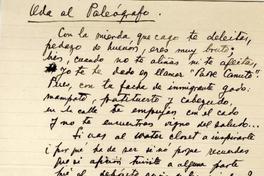 Oda al Paleógrafo.
Con la mierda, que cago te deleitas,
pedazo de huemos, eres muy bruto;
pues, cuando no te alinas ni te afeitas,
Yo te he dado en llamar "Padre Canuto".
Pues, con la facha de inmigrante godo,
mampato, prostituerto y cabezudo,
en la calle te empujan con el codo
y no te encuentras digno del saludo...
Si vas al Water Closet a inspirarte
¡por qué ha de ser si no! porque recuerdas
que ni aprison tuviste a alguna parte